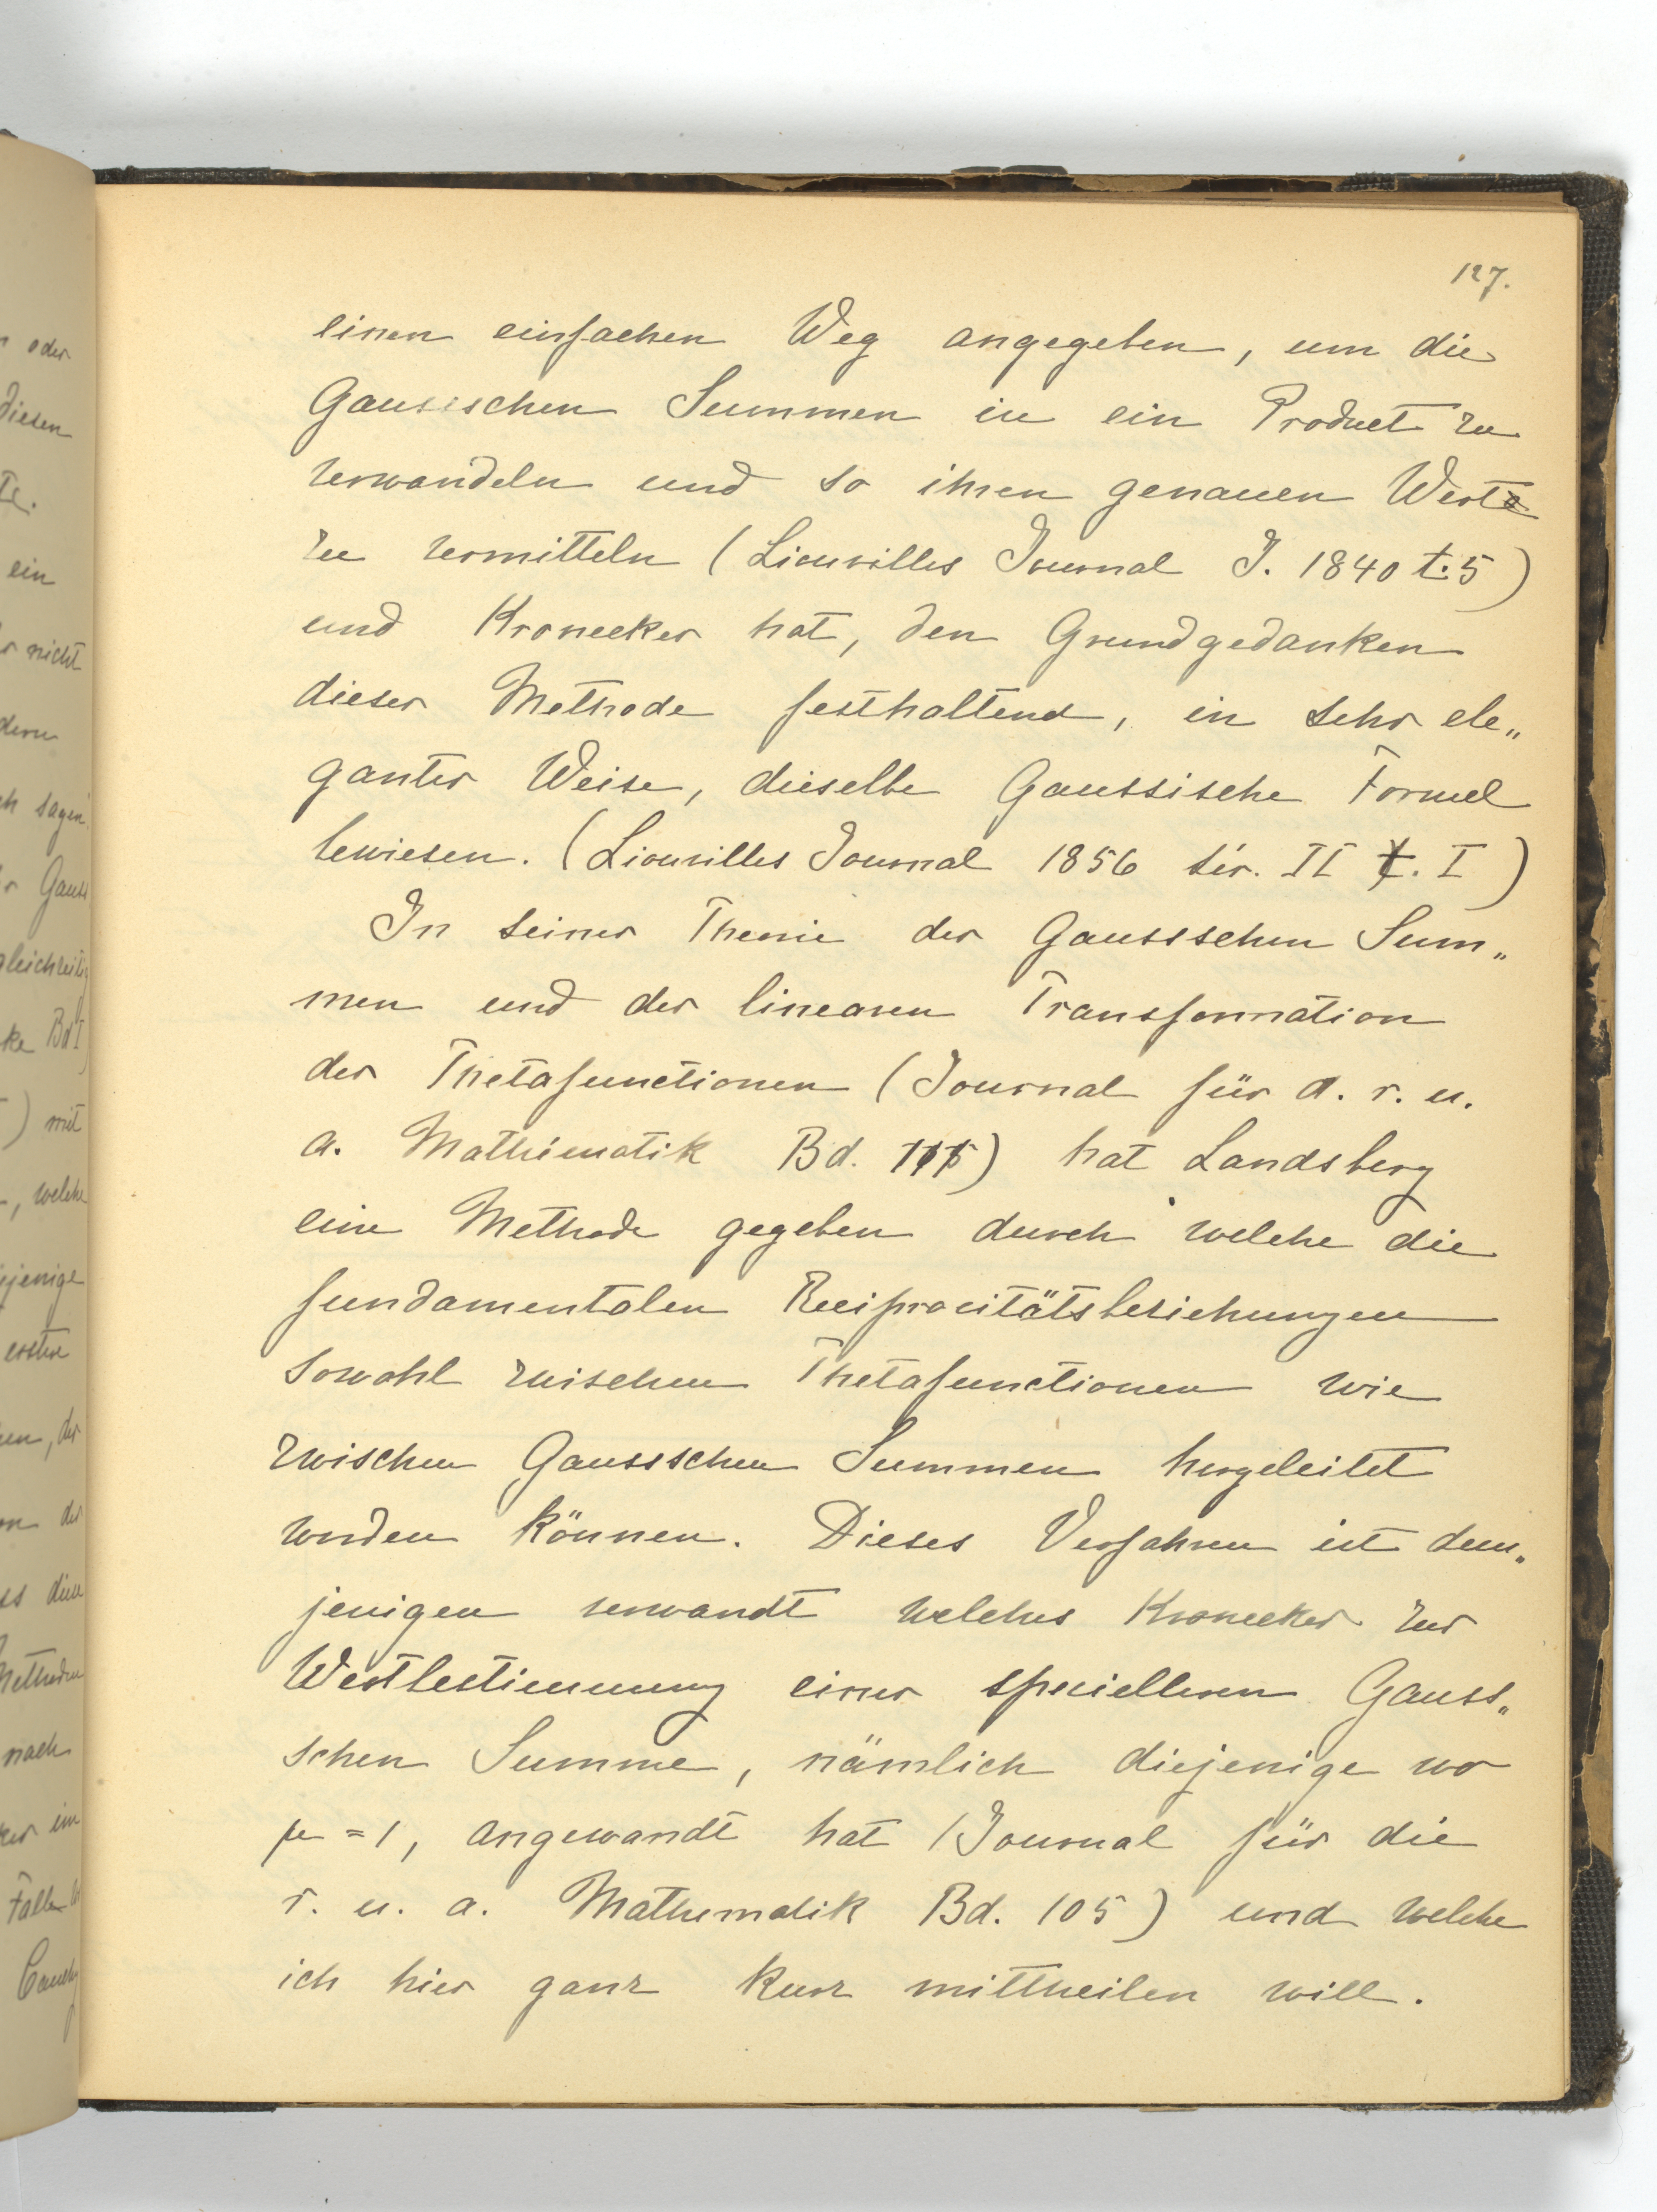 127.
einen einfachen Weg angegeben, um die
Gaussschen Summen in ein Product zu
verwandeln und so ihren genauen Wert
zu vermitteln (Liouvilles Journal J. 1840 t. 5)
und Kronecker hat, den Grundgedanken
dieser Methode festhaltend, in sehr ele„
ganter Weise, dieselbe Gaussische Formel
bewiesen. (Liouvilles Journal 1856 sér. II t. I)
In seiner Theorie der Gaussschen Sum„
men und der linearen Transformation
der Thetafunctionen (Journal für d. r. u.
a. Mathematik Bd. 111) hat Landsberg
eine Methode gegeben durch welche die
fundamentalen Reciprocitätsbeziehungen
sowohl zwischen Thetafunctionen wie
zwischen Gaussschen Summen hergeleitet
werden können. Dieses Verfahren ist dem„
jenigen verwandt welches Kronecker zur
Wertbestimmung einer specielleren Gauss„
schen Summe, nämlich diejenige wo
μ = 1, angewandt hat (Journal für die
r. u. a. Mathematik Bd. 105) und welche
ich hier ganz kurz mittheilen will.
oder
diesen
ein
nicht
sagen
Gauss
gleichzeitig
Bd I
) mit
, welche
erstere
der
diese
Methoden
nach
Falle
Cauchy